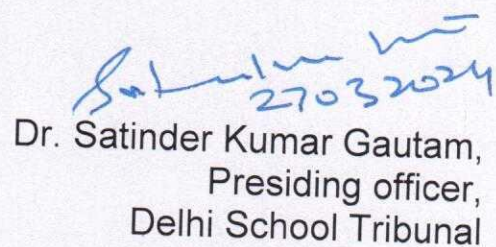 27032024
Dr. Satinder Kumar Gautam,
Presiding officer,
Delhi School Tribunal